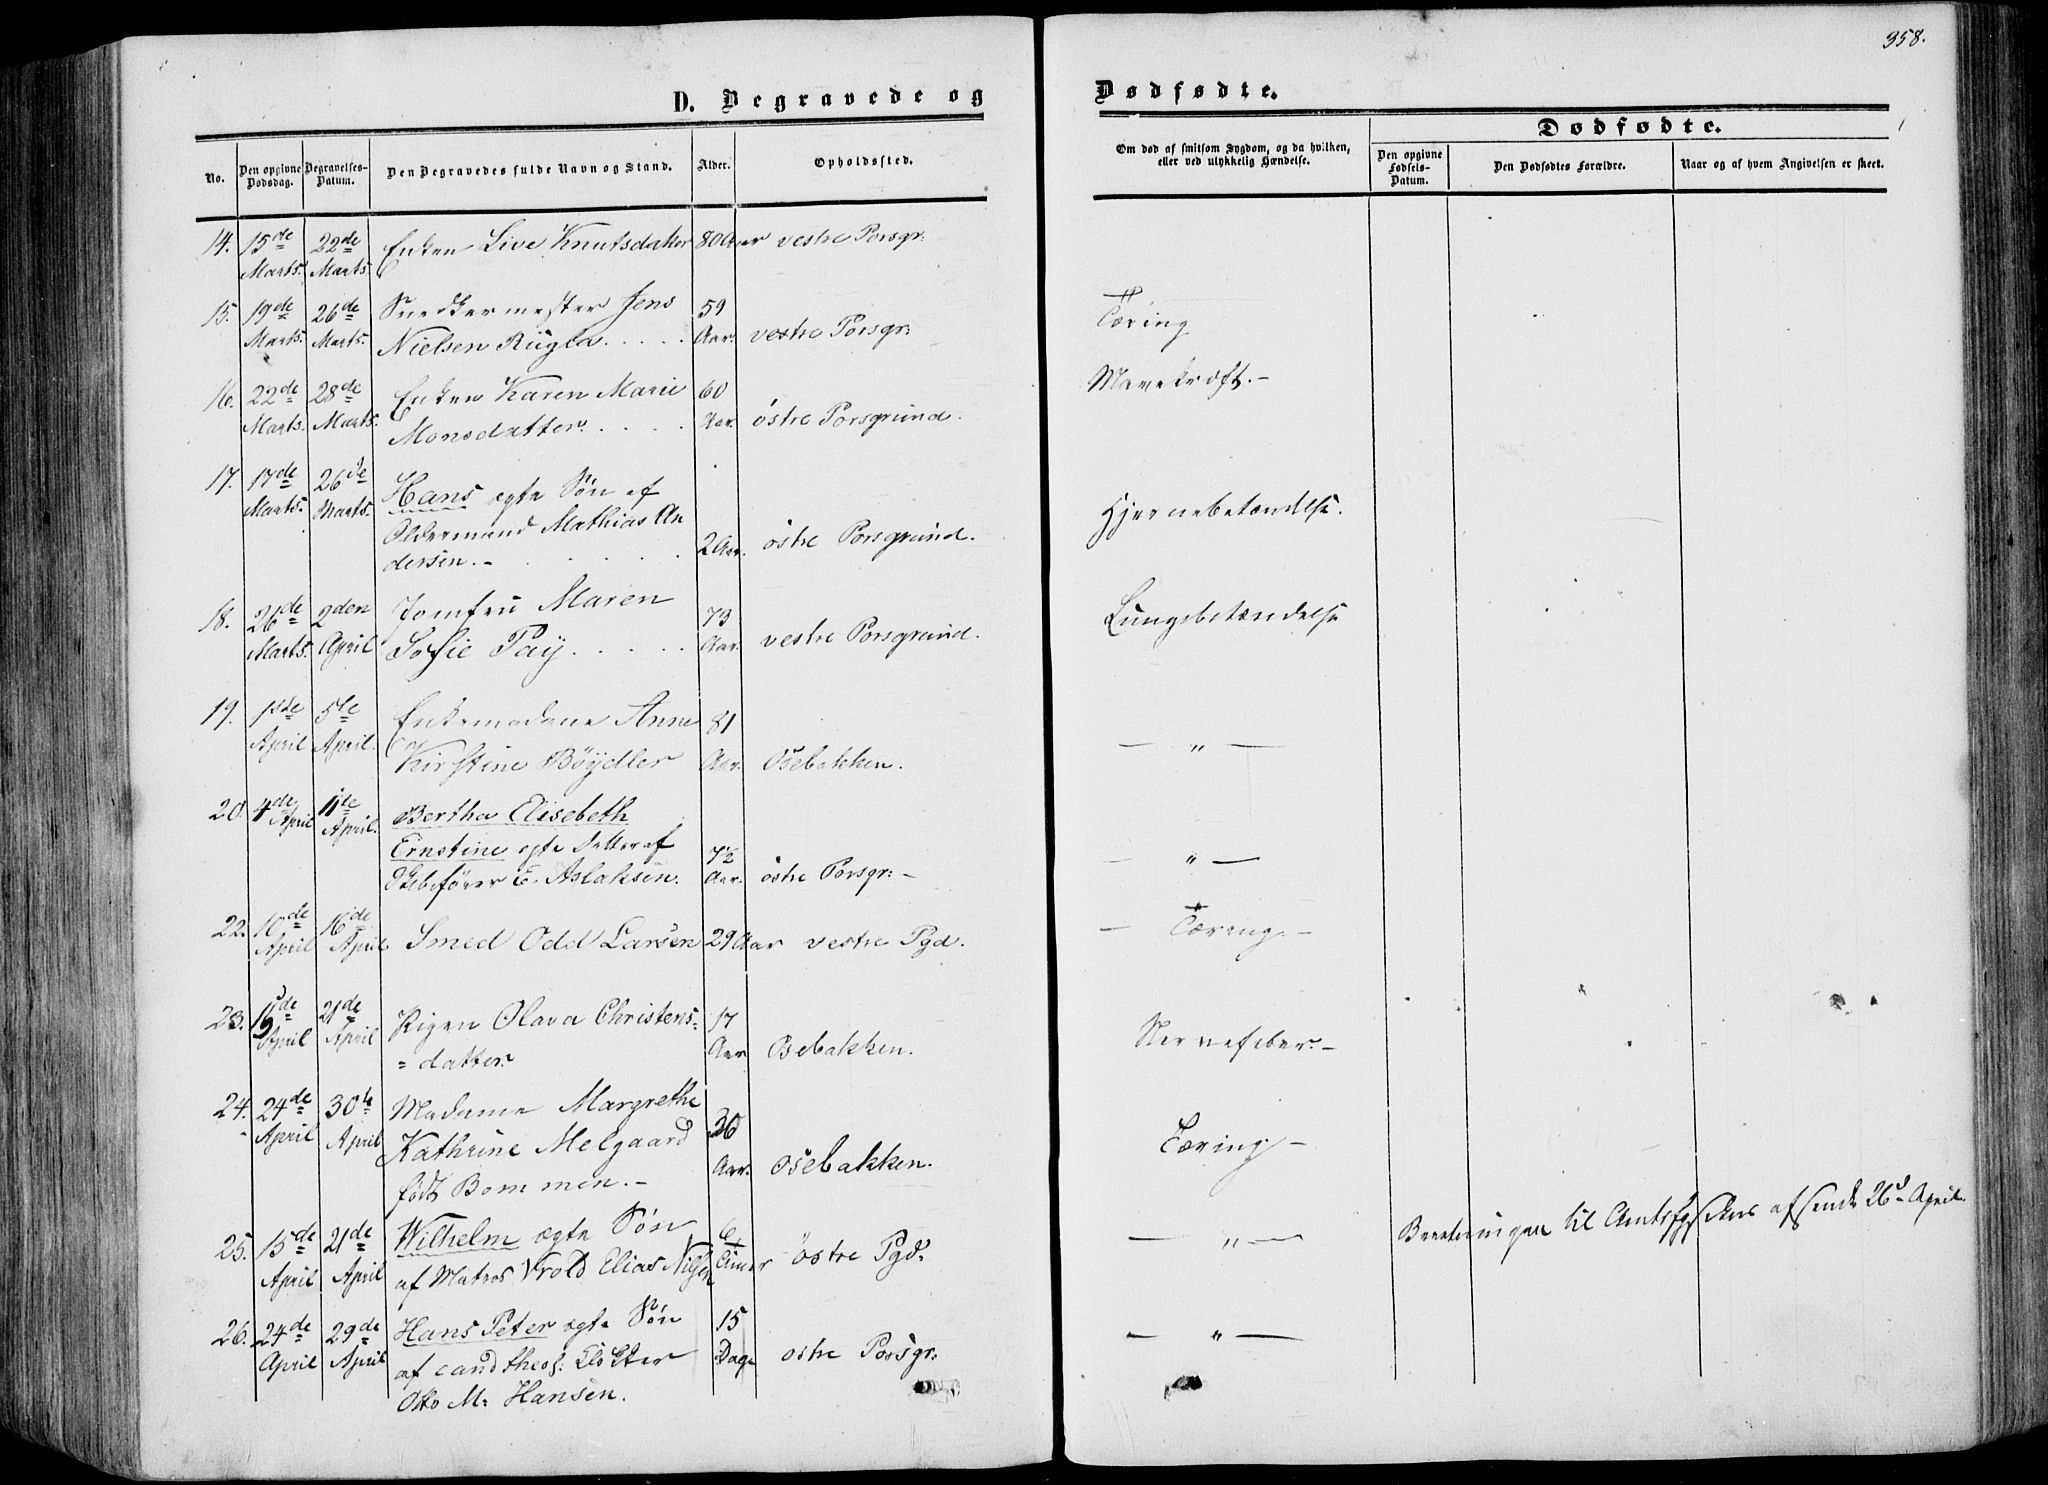 358.
D. Begravede og Dødfødte.
Dødfødte.
No.
Den opgivne Dødsdag.
Begravelses-Datum.
Den Begravedes fulde Navn og Stand.
Alder.
Opholdssted.
Om død af smitsom Sygdom, og da hvilken, eller ved ulykkelig Hændelse.
Den opgivne Fødsels-Datum.
Den Dødfødtes Forældre.
Naar og af hvem Angivelsen er skeet.
14. 15de 22de Enken Live Knutsdatter 80 Aar vestre Porsgr:
Marts. Marts.
15. 19de 26de Snedkermester Jens 59 Tæring
Marts. Marts. Nielsen Rugla . . . . Aar. vestre Porsgr:
16. 22de 28de Enken Karen Marie 60 Mavekræft. -
Marts. Marts. Monsdatter . . . . Aar. östre Porsgrund.
17. 17de 26de Hans egte Sön af Hjernebetændelse.
Marts. Marts. Oldermand Mathias An
dersen. - . . . . 2 Aar. östre Porsgrund.
18. 26de 2den Jomfru Maren 73 Lungebetændelse
Marts. April Sofie Paÿ . . . . . Aar. vestre Porsgrund.
19. 1ste 5te Enkemadame Anne 81 — " —
April April. Kirstine Böÿdler Aar. Osebakken.
20. 4de 11te Bertha Elisebeth
April April. Ernstine egte Datter af 7½ — " —
Skibsförer E. Aslaksen. Aar. östre Porsgr: -
22. 10de 16de Smed Odd Larsen 29 Aar vestre Pgd. — Tæring. -
April April
23. 15de 21de Pigen Olava Christens- 17 Nervefeber. -
April April = datter. Aar Osebakken.
24. 24de 30te Madame Margrethe 30 Tæring -
April April Kathrine Melgaard Aar. Osebakken.
födt Bommen. -
25. 15de 21de Wilhelm ægte Sön 6 — " — Beretningen til Amtsfysikus afsendt 26d April.
April April af Matros Vrold Elias Nilsen Timer östre Pgd.
26. 24de 29de Hans Peter ægte Sön 15 — " —
April April af cand theol: Klokker Dage ostre Porsgr:
Otto M. Hansen.